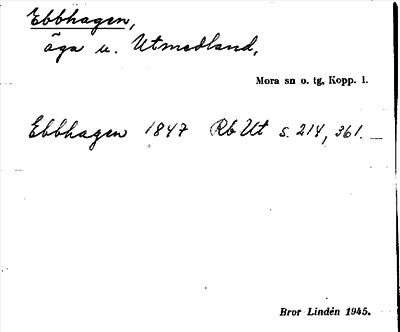 Ebbhagen,
äga u. Utmedland,
Mora sn o. tg, Kopp. l.
Ebbhagen 1847 Rb Ut s. 214, 361.
Bror Lindén 1945.